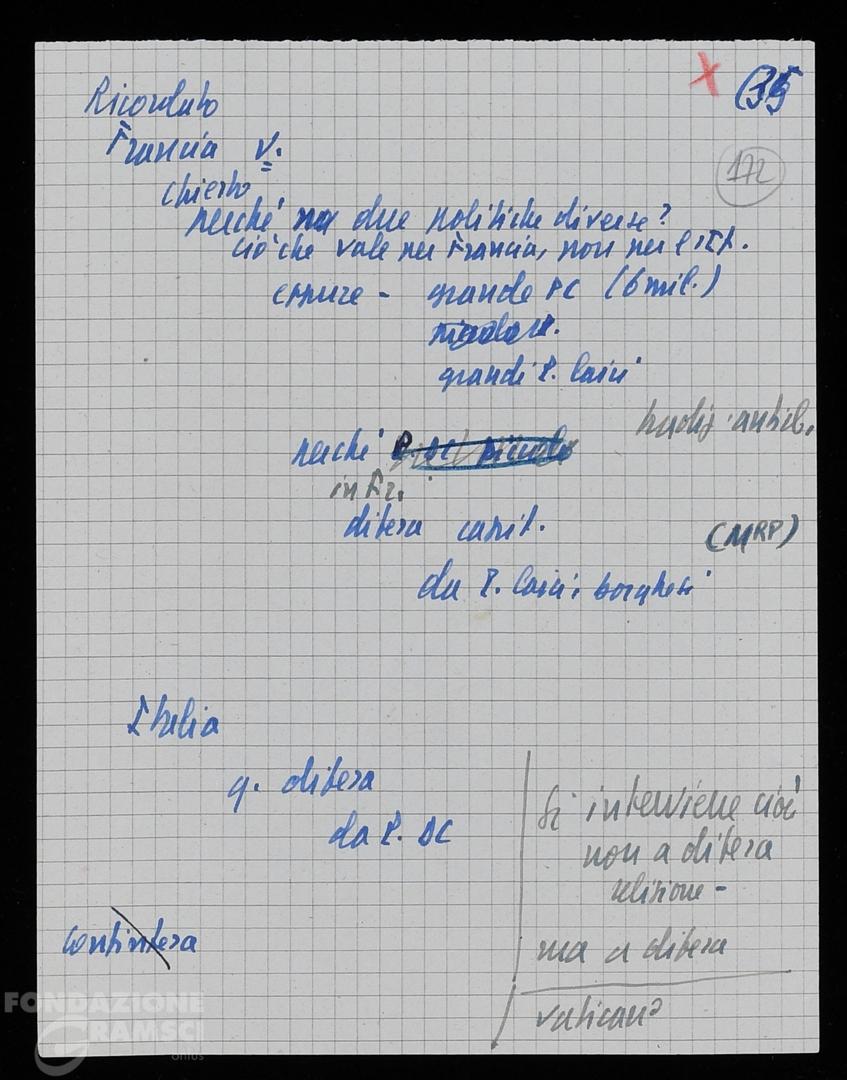 X 35
172
Ricordato
Francia v.
chiesto
perché due politiche diverse?
ciò che vale per Francia, non per l'It.
eppure - grande PC (6 mil.)
grandi P. laici
tradiz. anticl.
perché P. DC piccolo
in Fr.
difesa capit.
(MRP)
da P. laici borghesi
Italia
q. difesa
da P. DC
Si interviene cioè
non a difesa
religione -
ma a difesa
vaticano
FONDAZIONE
GRAMSCI
onlus